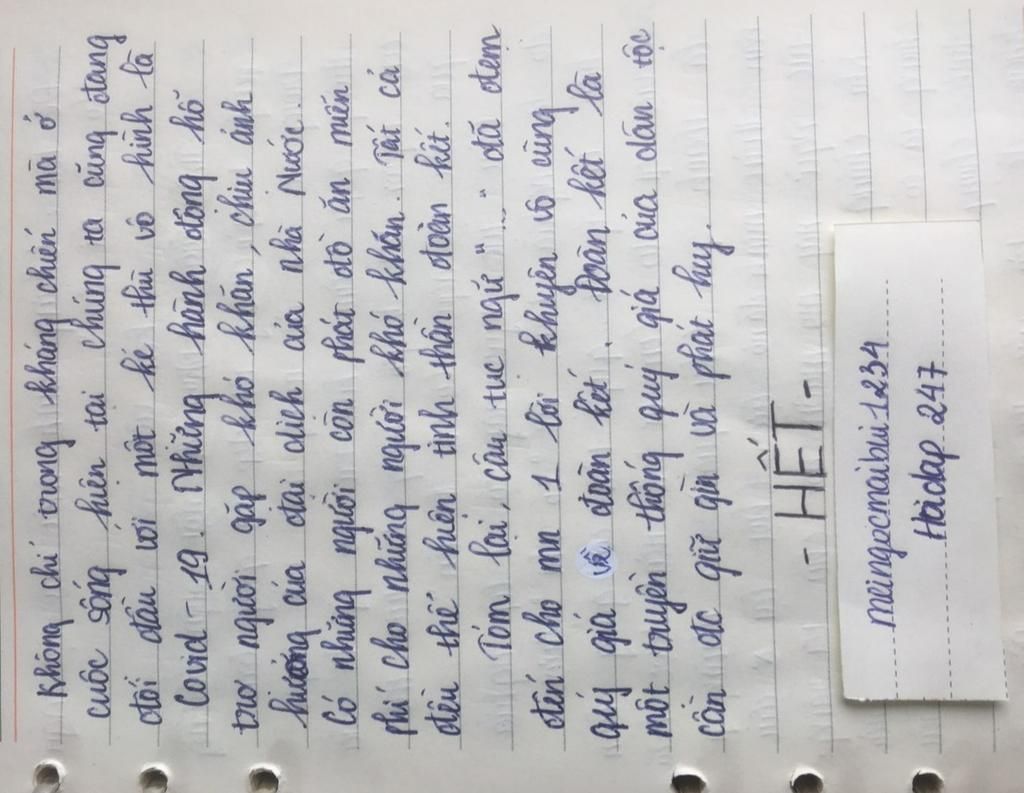 Không chỉ trong kháng chiến mà ở
cuộc sống hiện tại chúng ta cũng đang
đối đầu với một kẻ thù vô hình là
Covid-19. Những hành động hỗ
trơ người gặp khó khăn, chịu ảnh
hưởng của đại dịch của nhà Nước.
Có những người còn phát đồ ăn miễn
phí cho những người khó khăn. Tất cả
đều thể hiện tinh thần đoàn kết.
Tóm lại, câu tục ngữ "..." đã đem
đến cho mn 1 lời khuyên vô cùng
quý giá về đoàn kết. Đoàn kết là
một truyền thống quý giá của dân tộc
cần đc giữ gìn và phát huy.
- HẾT -
meingocmaibui1234
Hoidap 247